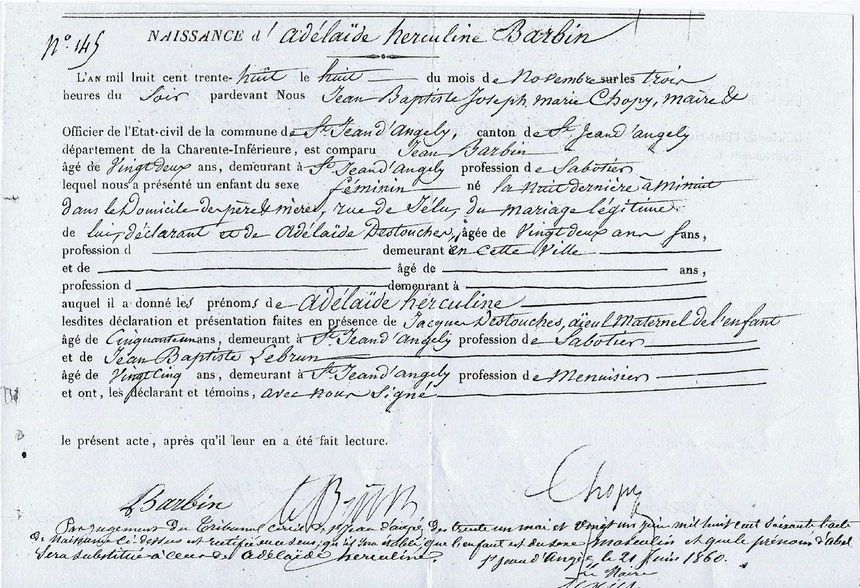 N.º 145 NAISSANCE d'Adélaïde herculine Barbin
L'AN mil huit cent trente-huit le huit du mois de Novembre sur les trois
heures du Soir pardevant Nous Jean Baptiste Joseph marie Chopy, maire &
Officier de l'Etat-civil de la commune de St Jean d'Angely, canton de St Jean d'angely
département de la Charente-Inférieure, est comparu Jean Barbin
âgé de Vingt deux ans, demeurant à St Jean d'Angely profession de Sabotier
lequel nous a présenté un enfant du sexe féminin né la Nuit dernière à minuit
dans le Domicile de père & mère, rue de Jélu, du mariage légitime
de lui, déclarant et de Adélaïde Destouches, âgée de Vingt deux ans ans,
profession d demeurant en cette Ville
et de âgé de ans,
profession d demeurant à
auquel il a donné les prénoms de Adélaïde herculine
lesdites déclaration et présentation faites en présence de Jacques Destouches, aïeul Maternel de l'enfant
âgé de Cinquante un ans, demeurant à St Jean d'Angely profession de Sabotier
et de Jean Baptiste Lebrun
âgé de Vingt Cinq ans, demeurant à St Jean d'angely profession de Menuisier
et ont, les déclarant et témoins, avec nous Signé
le présent acte, après qu'il leur en a été fait lecture.
Barbin Chopy
Par jugement du Tribunal civil de St Jean d'angély, des trente un mai et vingt un juin mil huit cent soixante l'acte
de Naissance ci-dessus est rectifié au sens que l'enfant est du sexe masculin et que le prénom d'abel
Sera substitué à ceux de Adélaïde herculine. St Jean d'Angély le 21 Juin 1860.
Le Maire